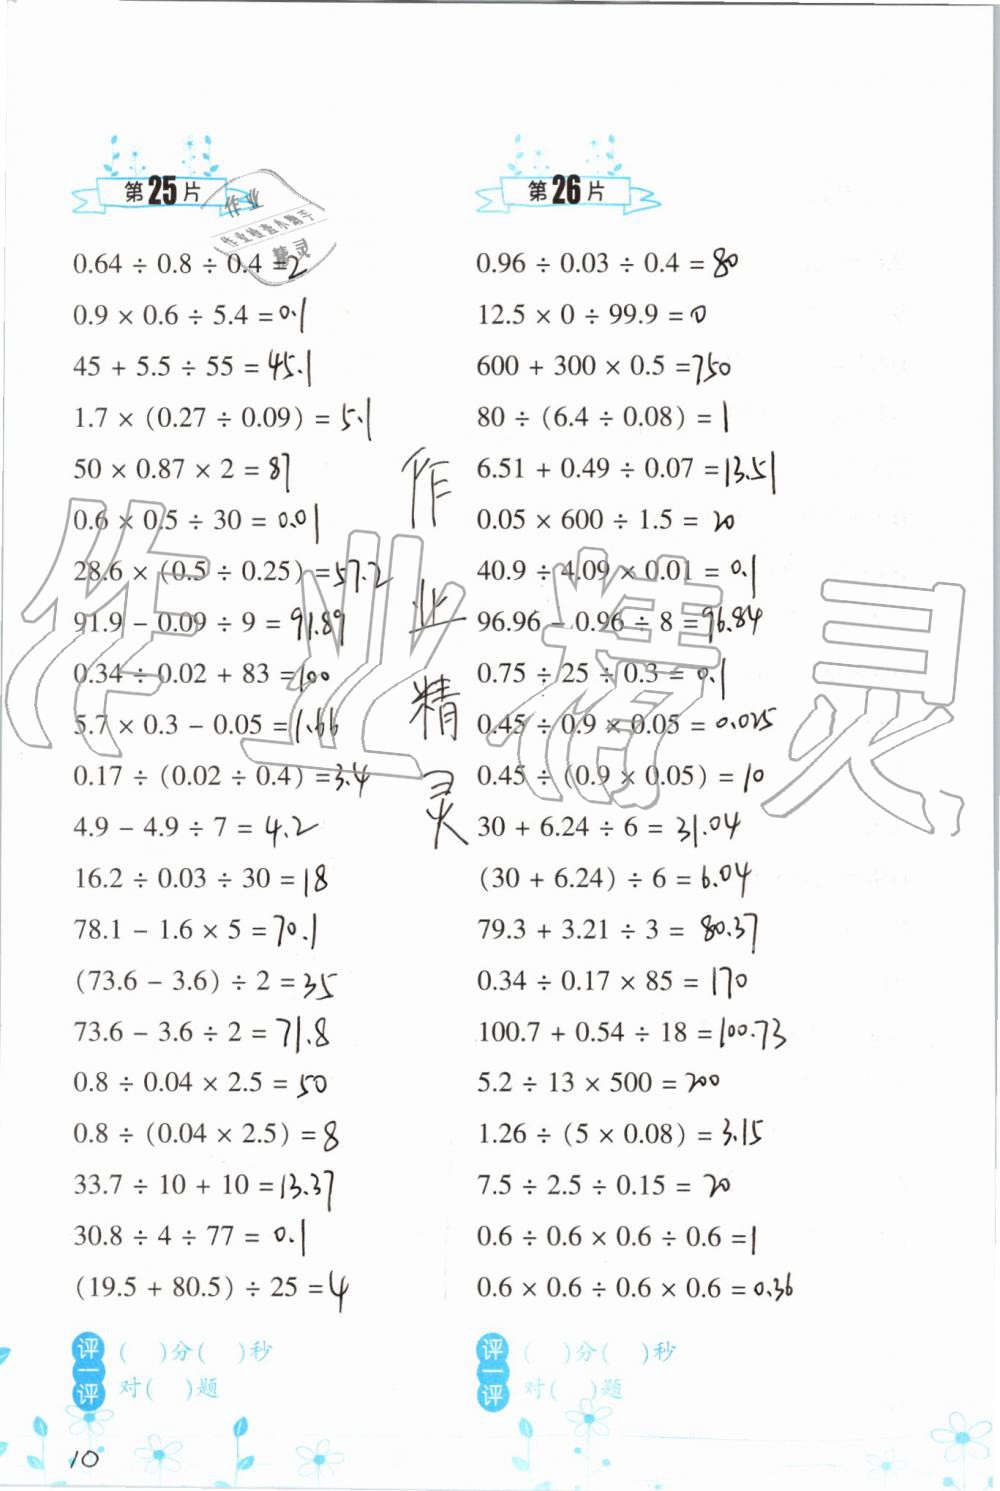 第25片
0.64 ÷ 0.8 ÷ 0.4 =2
0.9 × 0.6 ÷ 5.4 = 0.1
45 + 5.5 ÷ 55 = 45.1
1.7 × (0.27 ÷ 0.09) = 5.1
50 × 0.87 × 2 = 87
0.6 × 0.5 ÷ 30 = 0.01
28.6 × (0.5 ÷ 0.25) = 57.2
91.9 − 0.09 ÷ 9 = 91.89
0.34 ÷ 0.02 + 83 = 100
5.7 × 0.3 − 0.05 = 1.66
0.17 ÷ (0.02 ÷ 0.4) = 3.4
4.9 − 4.9 ÷ 7 = 4.2
16.2 ÷ 0.03 ÷ 30 = 18
78.1 − 1.6 × 5 = 70.1
(73.6 − 3.6) ÷ 2 = 35
73.6 − 3.6 ÷ 2 = 71.8
0.8 ÷ 0.04 × 2.5 = 50
0.8 ÷ (0.04 × 2.5) = 8
33.7 ÷ 10 + 10 = 13.37
30.8 ÷ 4 ÷ 77 = 0.1
(19.5 + 80.5) ÷ 25 = 4
评一评
( )分( )秒
对( )题
第26片
0.96 ÷ 0.03 ÷ 0.4 = 80
12.5 × 0 ÷ 99.9 = 0
600 + 300 × 0.5 = 750
80 ÷ (6.4 ÷ 0.08) = 1
6.51 + 0.49 ÷ 0.07 = 13.51
0.05 × 600 ÷ 1.5 = 20
40.9 ÷ 4.09 × 0.01 = 0.1
96.96 − 0.96 ÷ 8 = 96.84
0.75 ÷ 25 ÷ 0.3 = 0.1
0.45 ÷ 0.9 × 0.05 = 0.025
0.45 ÷ (0.9 × 0.05) = 10
30 + 6.24 ÷ 6 = 31.04
(30 + 6.24) ÷ 6 = 6.04
79.3 + 3.21 ÷ 3 = 80.37
0.34 ÷ 0.17 × 85 = 170
100.7 + 0.54 ÷ 18 = 100.73
5.2 ÷ 13 × 500 = 200
1.26 ÷ (5 × 0.08) = 3.15
7.5 ÷ 2.5 ÷ 0.15 = 20
0.6 ÷ 0.6 × 0.6 ÷ 0.6 = 1
0.6 × 0.6 ÷ 0.6 × 0.6 = 0.36
评一评
( )分( )秒
对( )题
作业精灵
作业精灵
作业
作业检查小助手
精灵
10